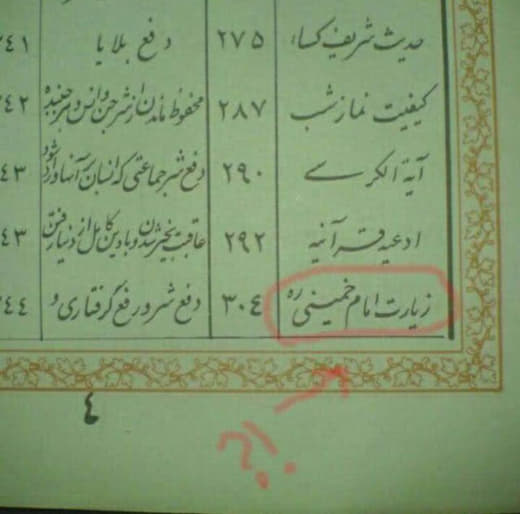 حدیث شریف کساء ۲۷۵ دفع بلایا ۲٤۱
کیفیت نماز شب ۲۸۷ محفوظ ماندن از شر جن و انس و هر جنبنده ۲٤۲
آیة الکرسی ۲۹۰ دفع شر جماعتی که انسان بر آنها وارد شود ۲٤۳
ادعیه قرآنیه ۲۹۲ عاقبت بخیر شدن و با دین کامل از دنیا رفتن ۲٤۳
زیارت امام خمینی ره ۳۰٤ دفع شر و رفع گرفتاری و ۲٤٤
٤
؟!